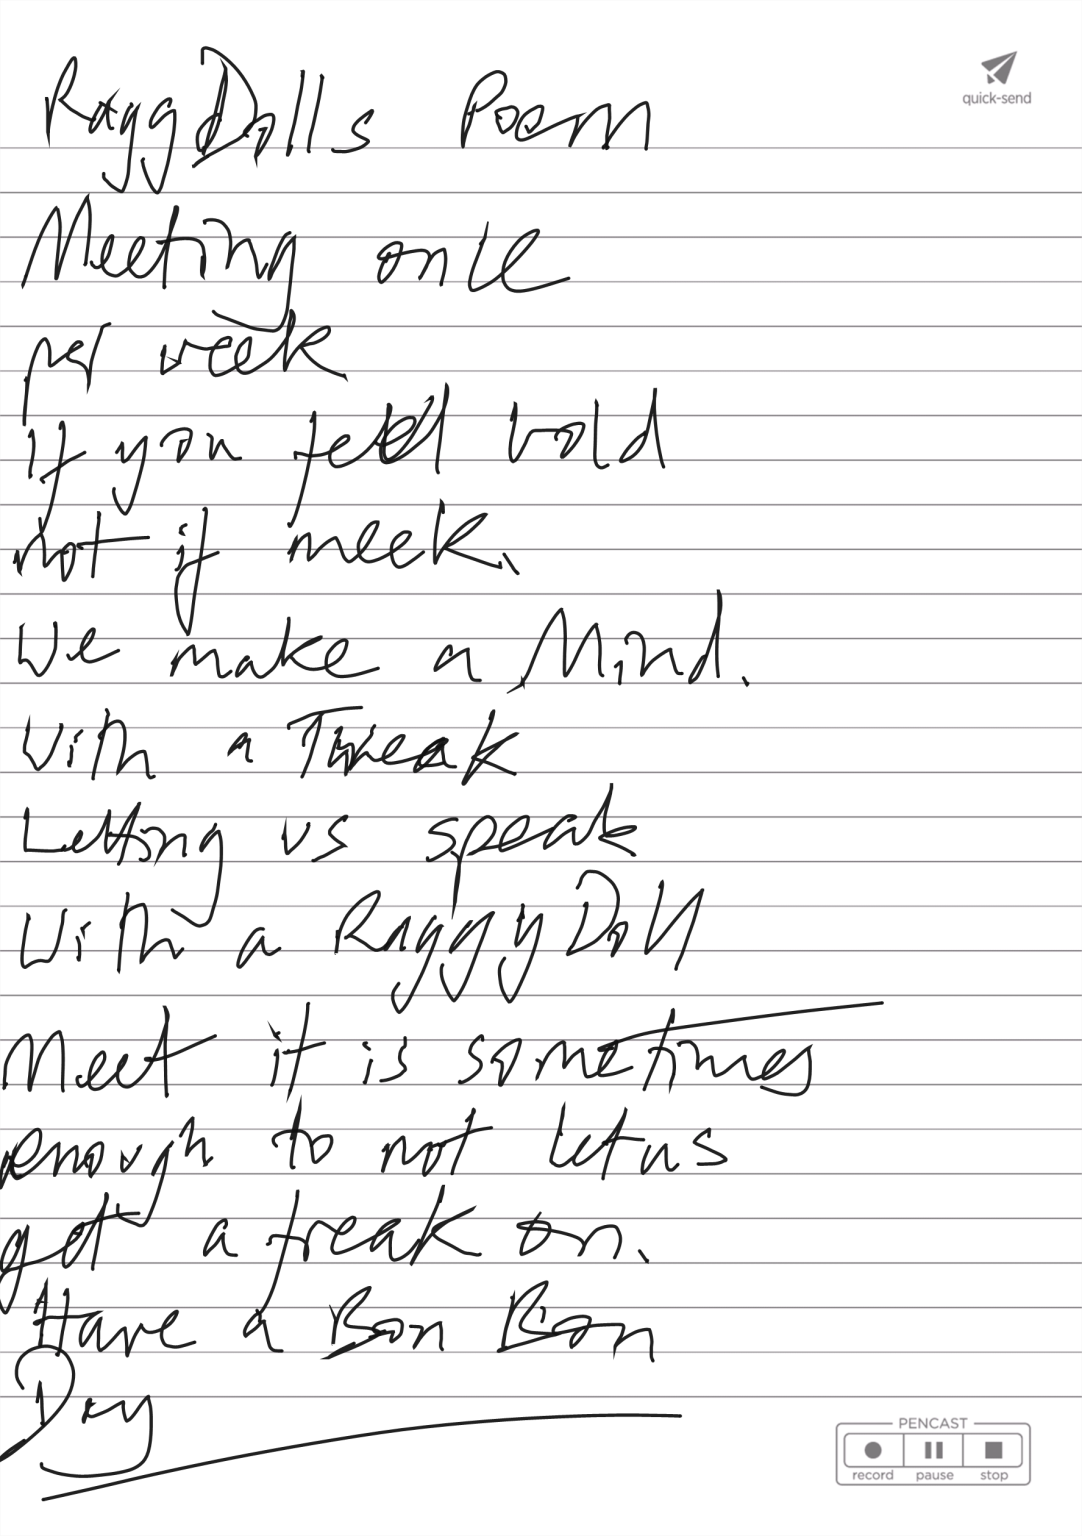 RaggDolls Poem
quick-send
Meeting once
per week
if you feel bold
not if meek.
We make a Mind.
With a Tweak
Letting us speak
With a RaggyDoll
Meet it is sometimes
enough to not let us
get a freak on.
Have a Bon Bon
Day
PENCAST
record pause stop